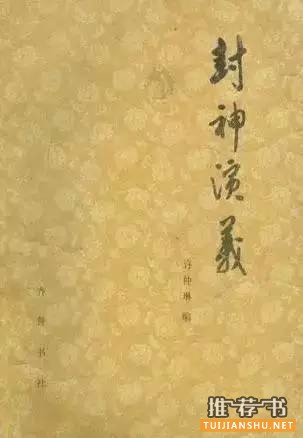 封神演義
许仲琳 编
齐鲁书社
推荐书
TUIJIANSHU.NET